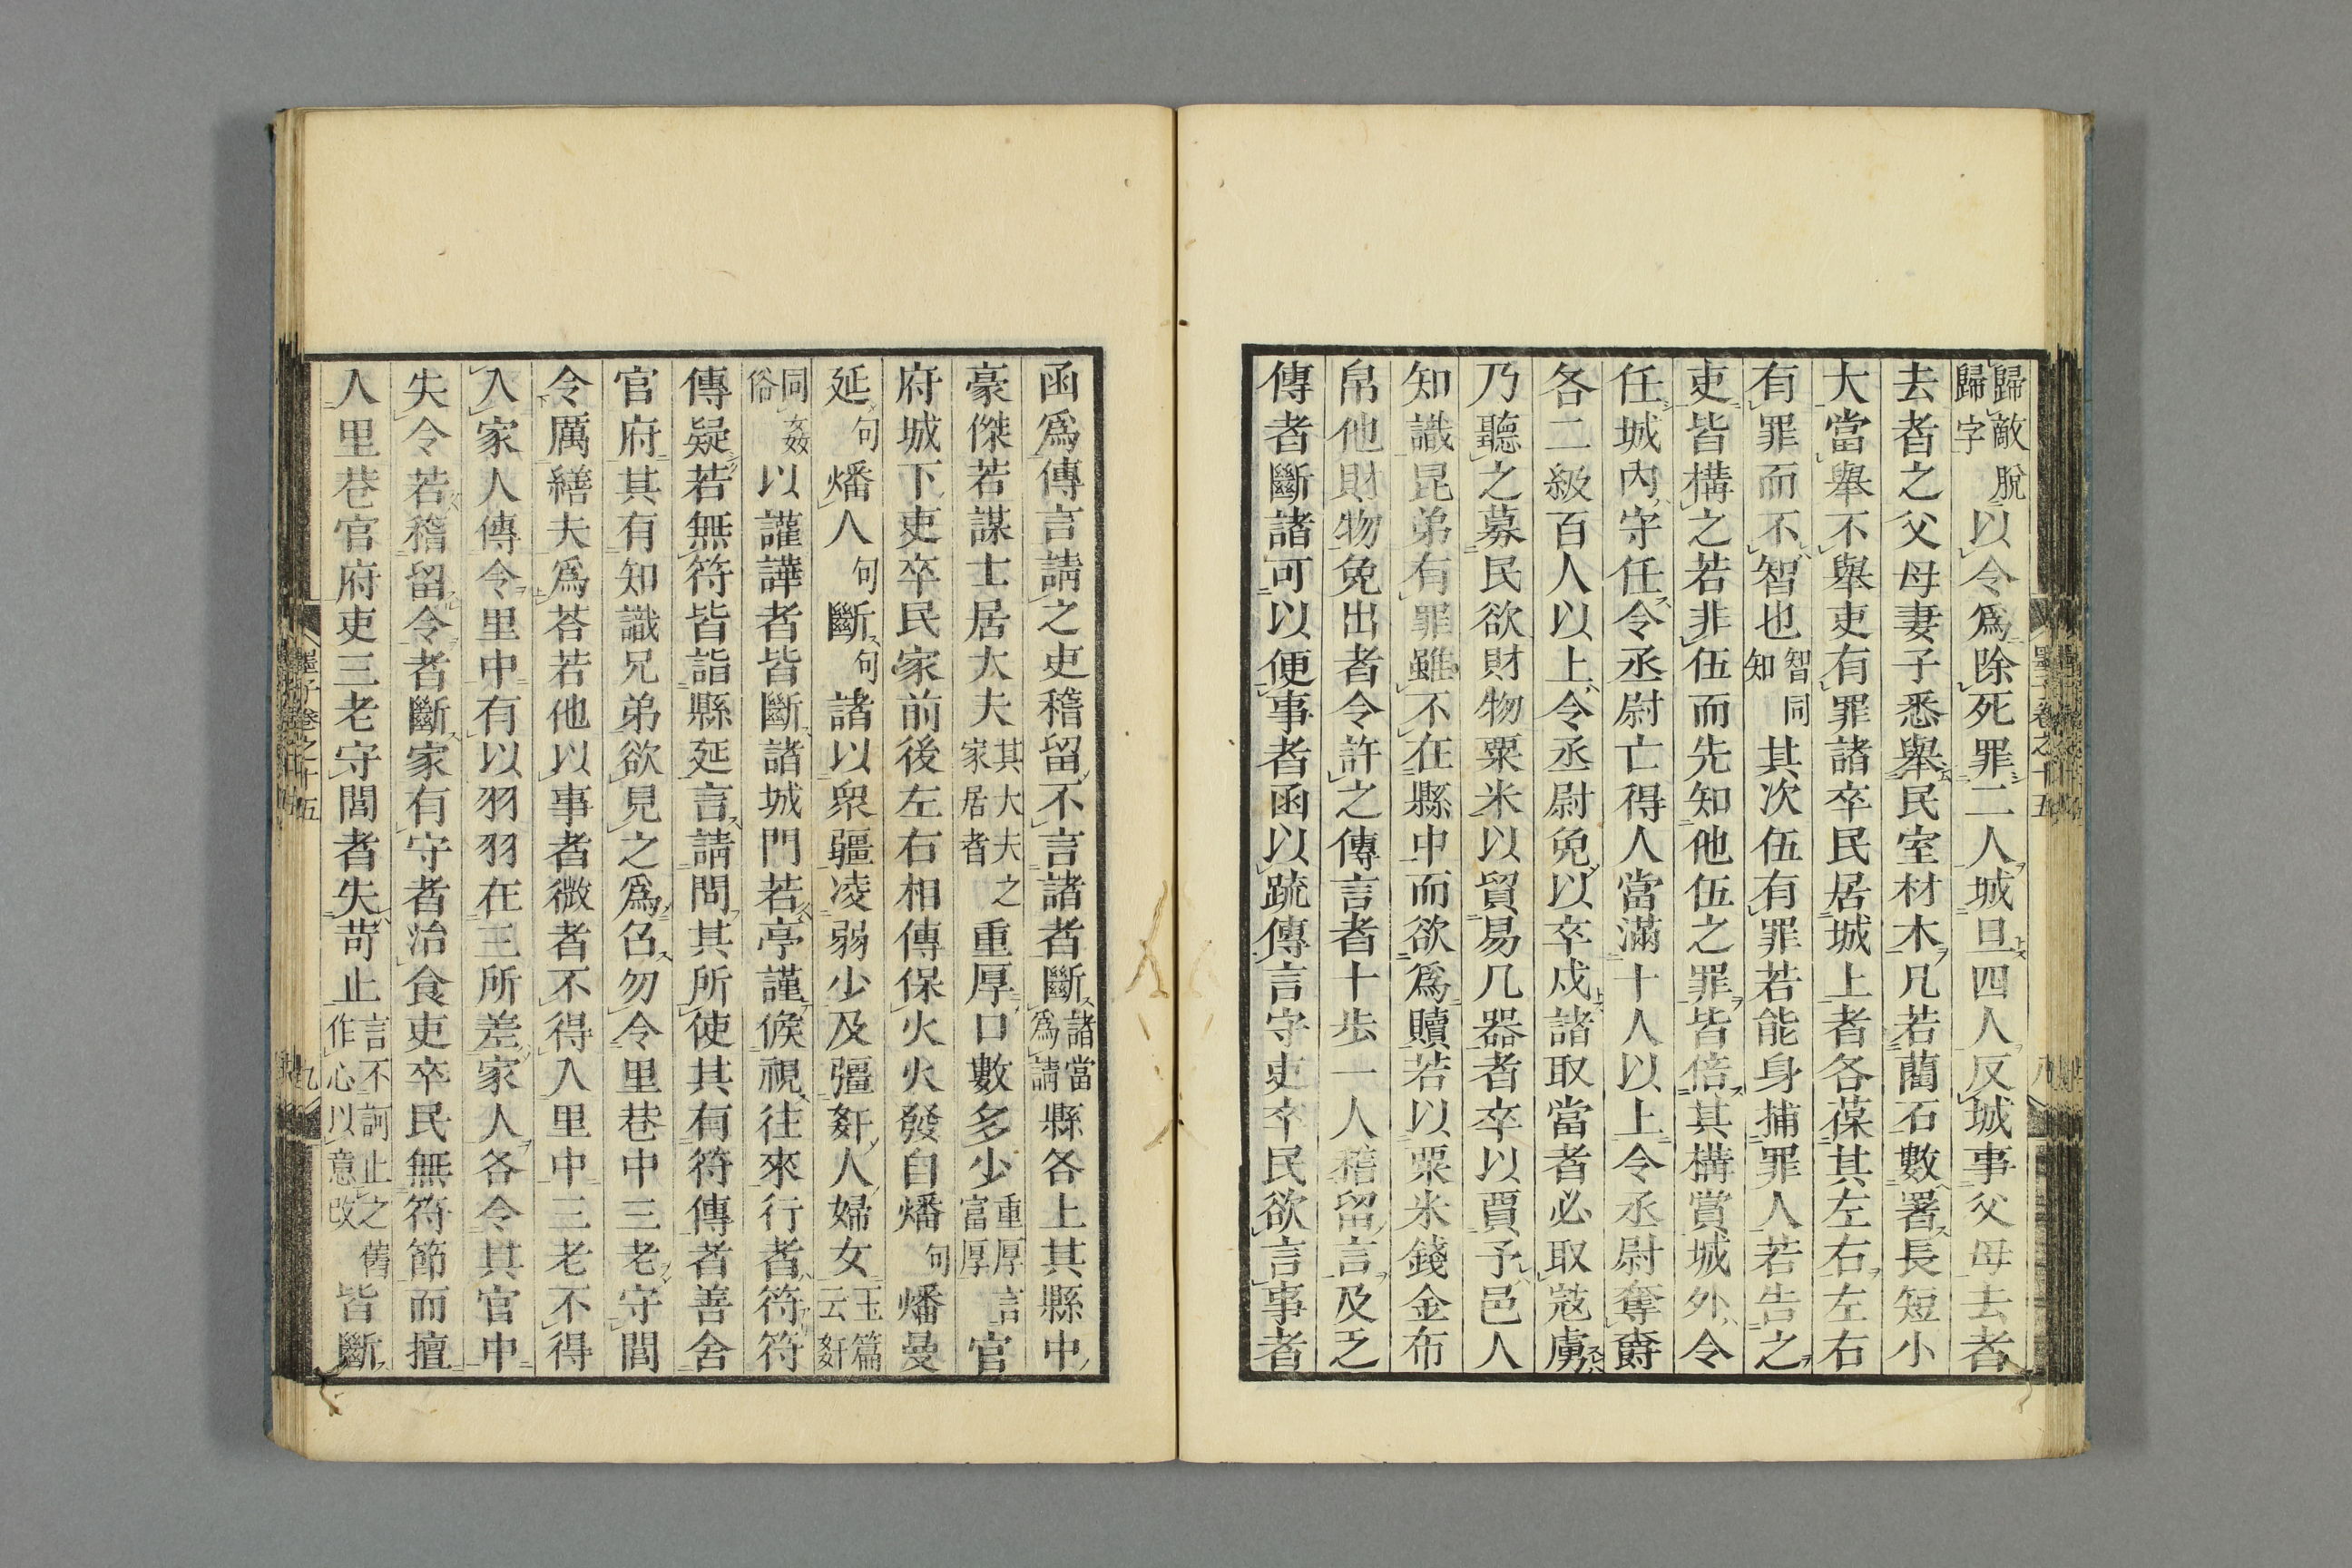 歸敵脫歸字以令爲除死罪二人城旦四人反城事父母去者
去者之父母妻子悉舉民室材木凡若藺石數署長短小
大當舉不舉吏有罪諸卒民居城上者各葆其左右左右
有罪而不智也智同知其次伍有罪若能身捕罪人若告之
吏皆構之若非伍而先知他伍之罪皆倍其構賞城外令
任城內守任令丞尉亡得人當滿十人以上令丞尉奪爵
各二級百人以上令丞尉免以卒戍諸取當者必取寇虜
乃聽之募民欲財物粟米以貿易凡器者卒以賈予邑人
知識昆弟有罪雖不在縣中而欲爲贖若以粟米錢金布
帛他財物免出者令許之傳言者十步一人稽留言及乏
傳者斷諸可以便事者函以疏傳言守吏卒民欲言事者
函爲傳言請之吏稽留不言諸者斷諸當爲請縣各上其縣中
豪傑若謀士居大夫其大夫之家居者重厚口數多少重厚言富厚官
府城下吏卒民家前後左右相傳保火火發自燔句燔曼
延句燔人句斷句諸以衆疆凌弱少及彊姧人婦女玉篇云姧
同姦俗以讙譁者皆斷諸城門若亭謹候視往來行者符符
傳疑若無符皆詣縣延言請問其所使其有符傳者善舍
官府其有知識兄弟欲見之爲召勿令里巷中三老守閭
令厲繕夫爲荅若他以事者微者不得入里中三老不得
入家人傳令里中有以羽羽在三所差家人各令其官中
失令若稽留令者斷家有守者治食吏卒民無符節而擅
入里巷官府吏三老守閭者失苛止言不訶止之舊作心以意改皆斷
墨子卷之十五
八
墨子卷之十五
九